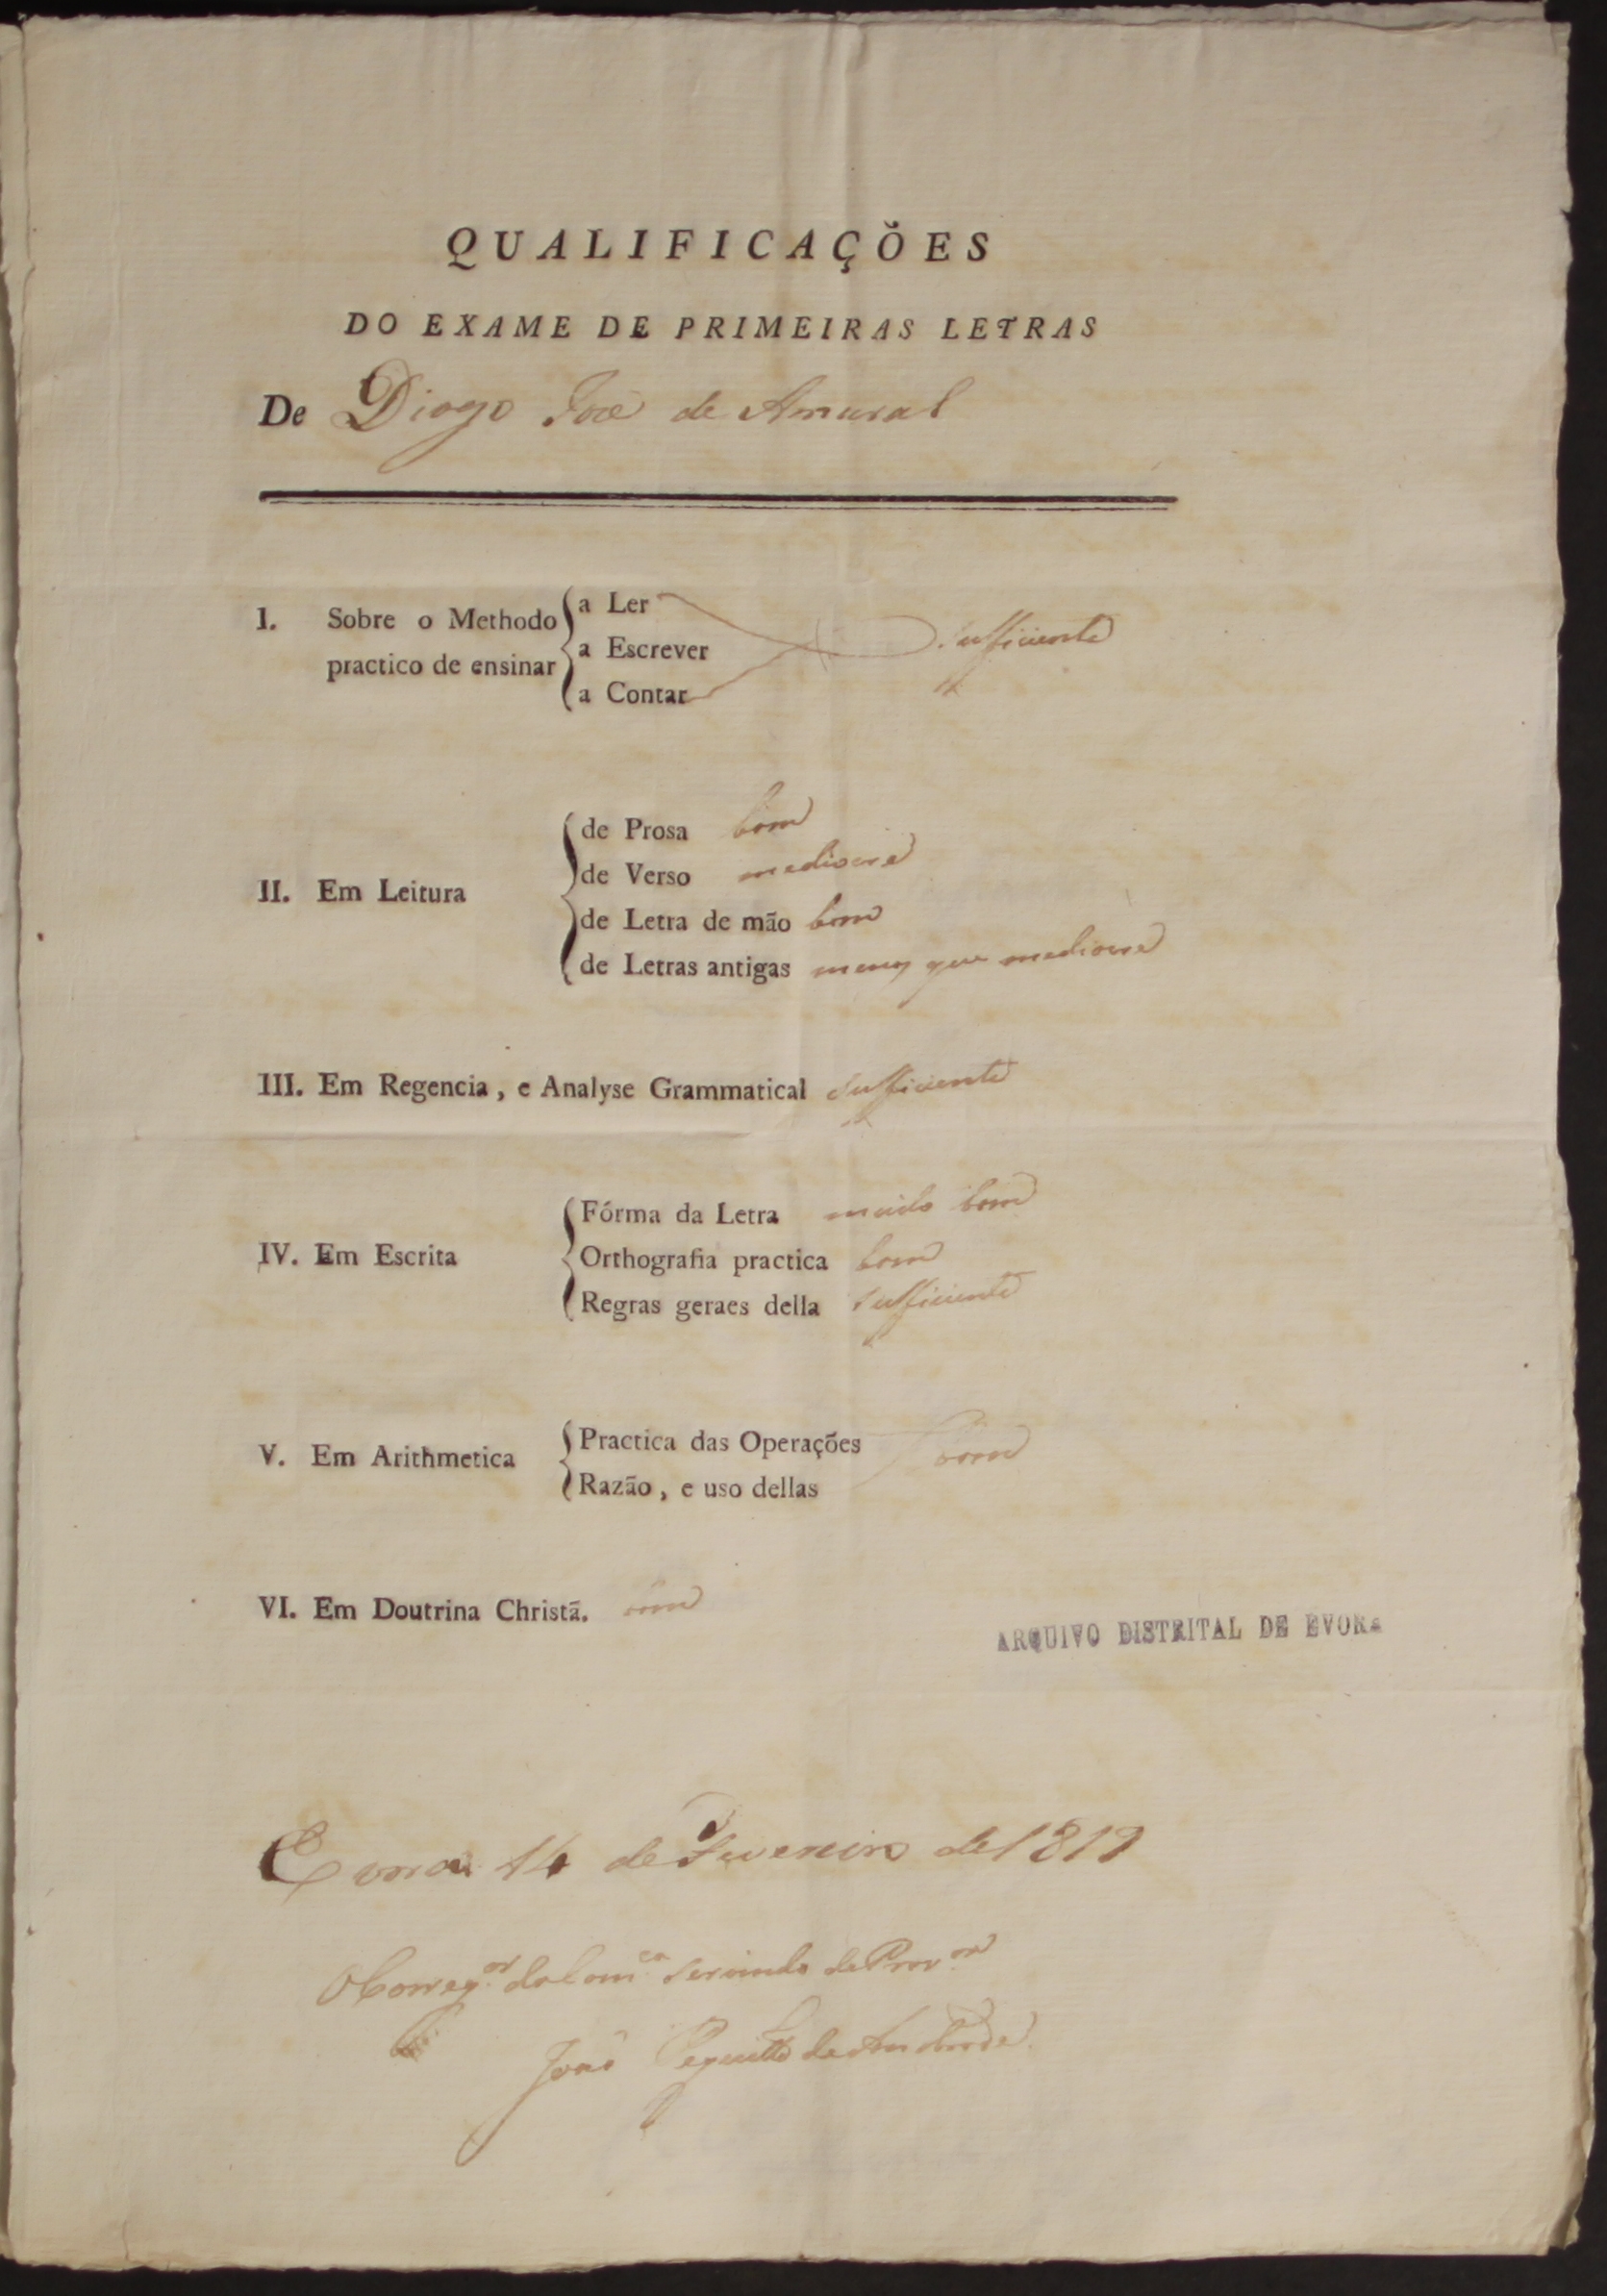 QUALIFICAÇÕES
DO EXAME DE PRIMEIRAS LETRAS
De Diogo José de Amaral
I. Sobre o Methodo practico de ensinar
a Ler
a Escrever
a Contar
sufficiente
II. Em Leitura
de Prosa bom
de Verso mediocre
de Letra de mão bom
de Letras antigas menos que mediocre
III. Em Regencia, e Analyse Grammatical sufficiente
IV. Em Escrita
Fórma da Letra muito bom
Orthografia practica bom
Regras geraes della sufficiente
V. Em Arithmetica
Practica das Operações
Razão, e uso dellas
bom
VI. Em Doutrina Christã. bom
ARQUIVO DISTRITAL DE EVORA
Evora 14 de Fevereiro de 1819
O Correg.or da Com.ca servindo de Prov.or
de Andrade